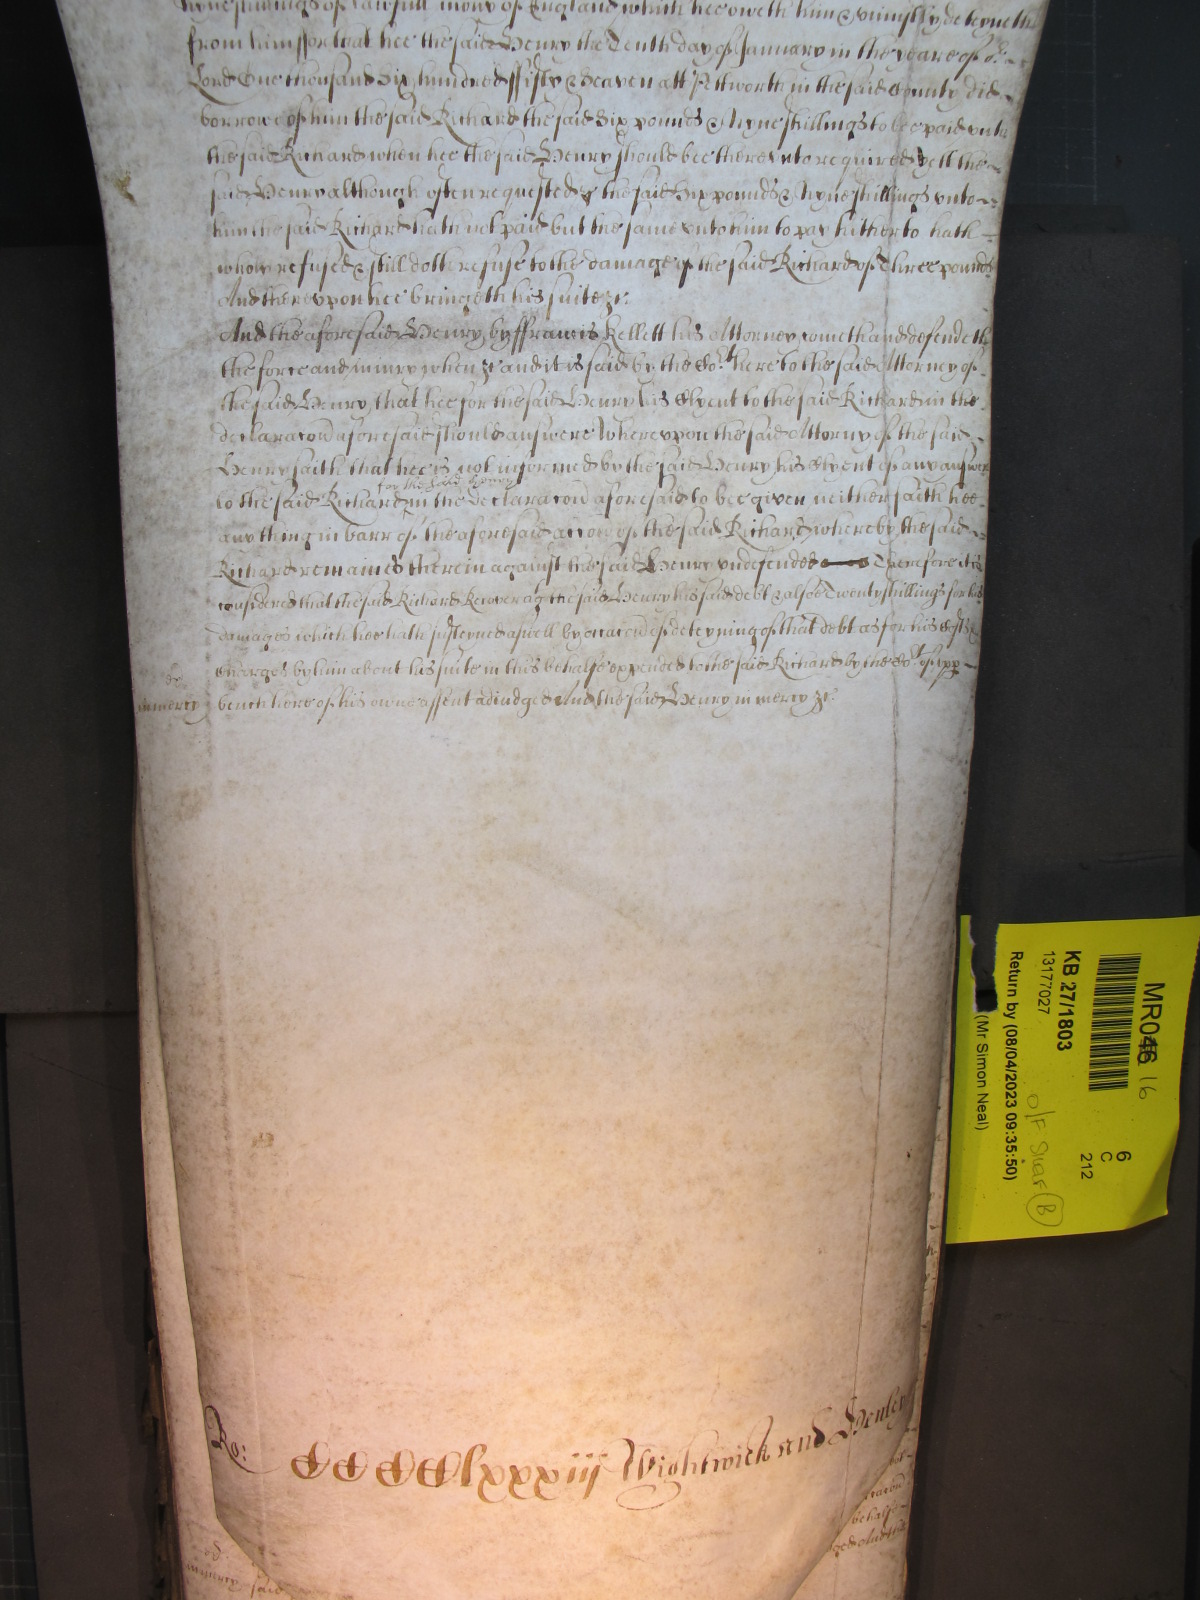 Nyne shillings of lawfull mony of England which hee oweth him & uniustly deteyneth
from him ffor that hee the said Henry the Tenth day of January in the yeare of or
Lord One thousand Six hundred ffifty & Seaven att in the said County did
borrowe of him the said Richard the said Six pounds & Nyne shillings to bee paid unto
the said Richard when hee the said Henry should bee thereunto required yett the
said Henry although often requested &c the said Six pounds & Nyne shillings unto
him the said Richard hath not paid but the same unto him to pay hitherto hath
wholy refused & still doth refuse to the damage of the said Richard of Three pounds
And thereupon hee bringeth his suite &c
And the aforesaid Henry by ffrancis Kellett his Attorney cometh and defendeth
the force and iniury when &c and it is said by the Cort here to the said Attorney of
the said Henry that hee for the said Henry his Clyent to the said Richard in the
declaracon aforesaid should answere Whereupon the said Attorny of the said
Henry saith that hee is not informed by the said Henry his Clyent of any answer
for the said Henry
to the said Richard in the declaracon aforesaid to bee given neither saith hee
any thing in barr of the aforesaid accon of the said Richard whereby the said
Richard remaines therein against the said Henry undefended Therefore it is
considered that the said Richard Recover agt the said Henry his said debt & alsoe Twenty shillings for his
damages which hee hath susteyned aswell by occacon of deteyning of that debt as for his Costs &
charges by him about his suite in this behalfe expended to the said Richard by the Cort of upp
bench here of his owne assent adiudged And the said Henry in mercy &c
in mercy
Ro: CCCClxxxiij Wightwick and Henley
behalfe
in mercy said
MR046 16
KB 27/1803
13177027
Return by (08/04/2023 09:35:50)
(Mr Simon Neal)
6
C
212
O/F Shelf B